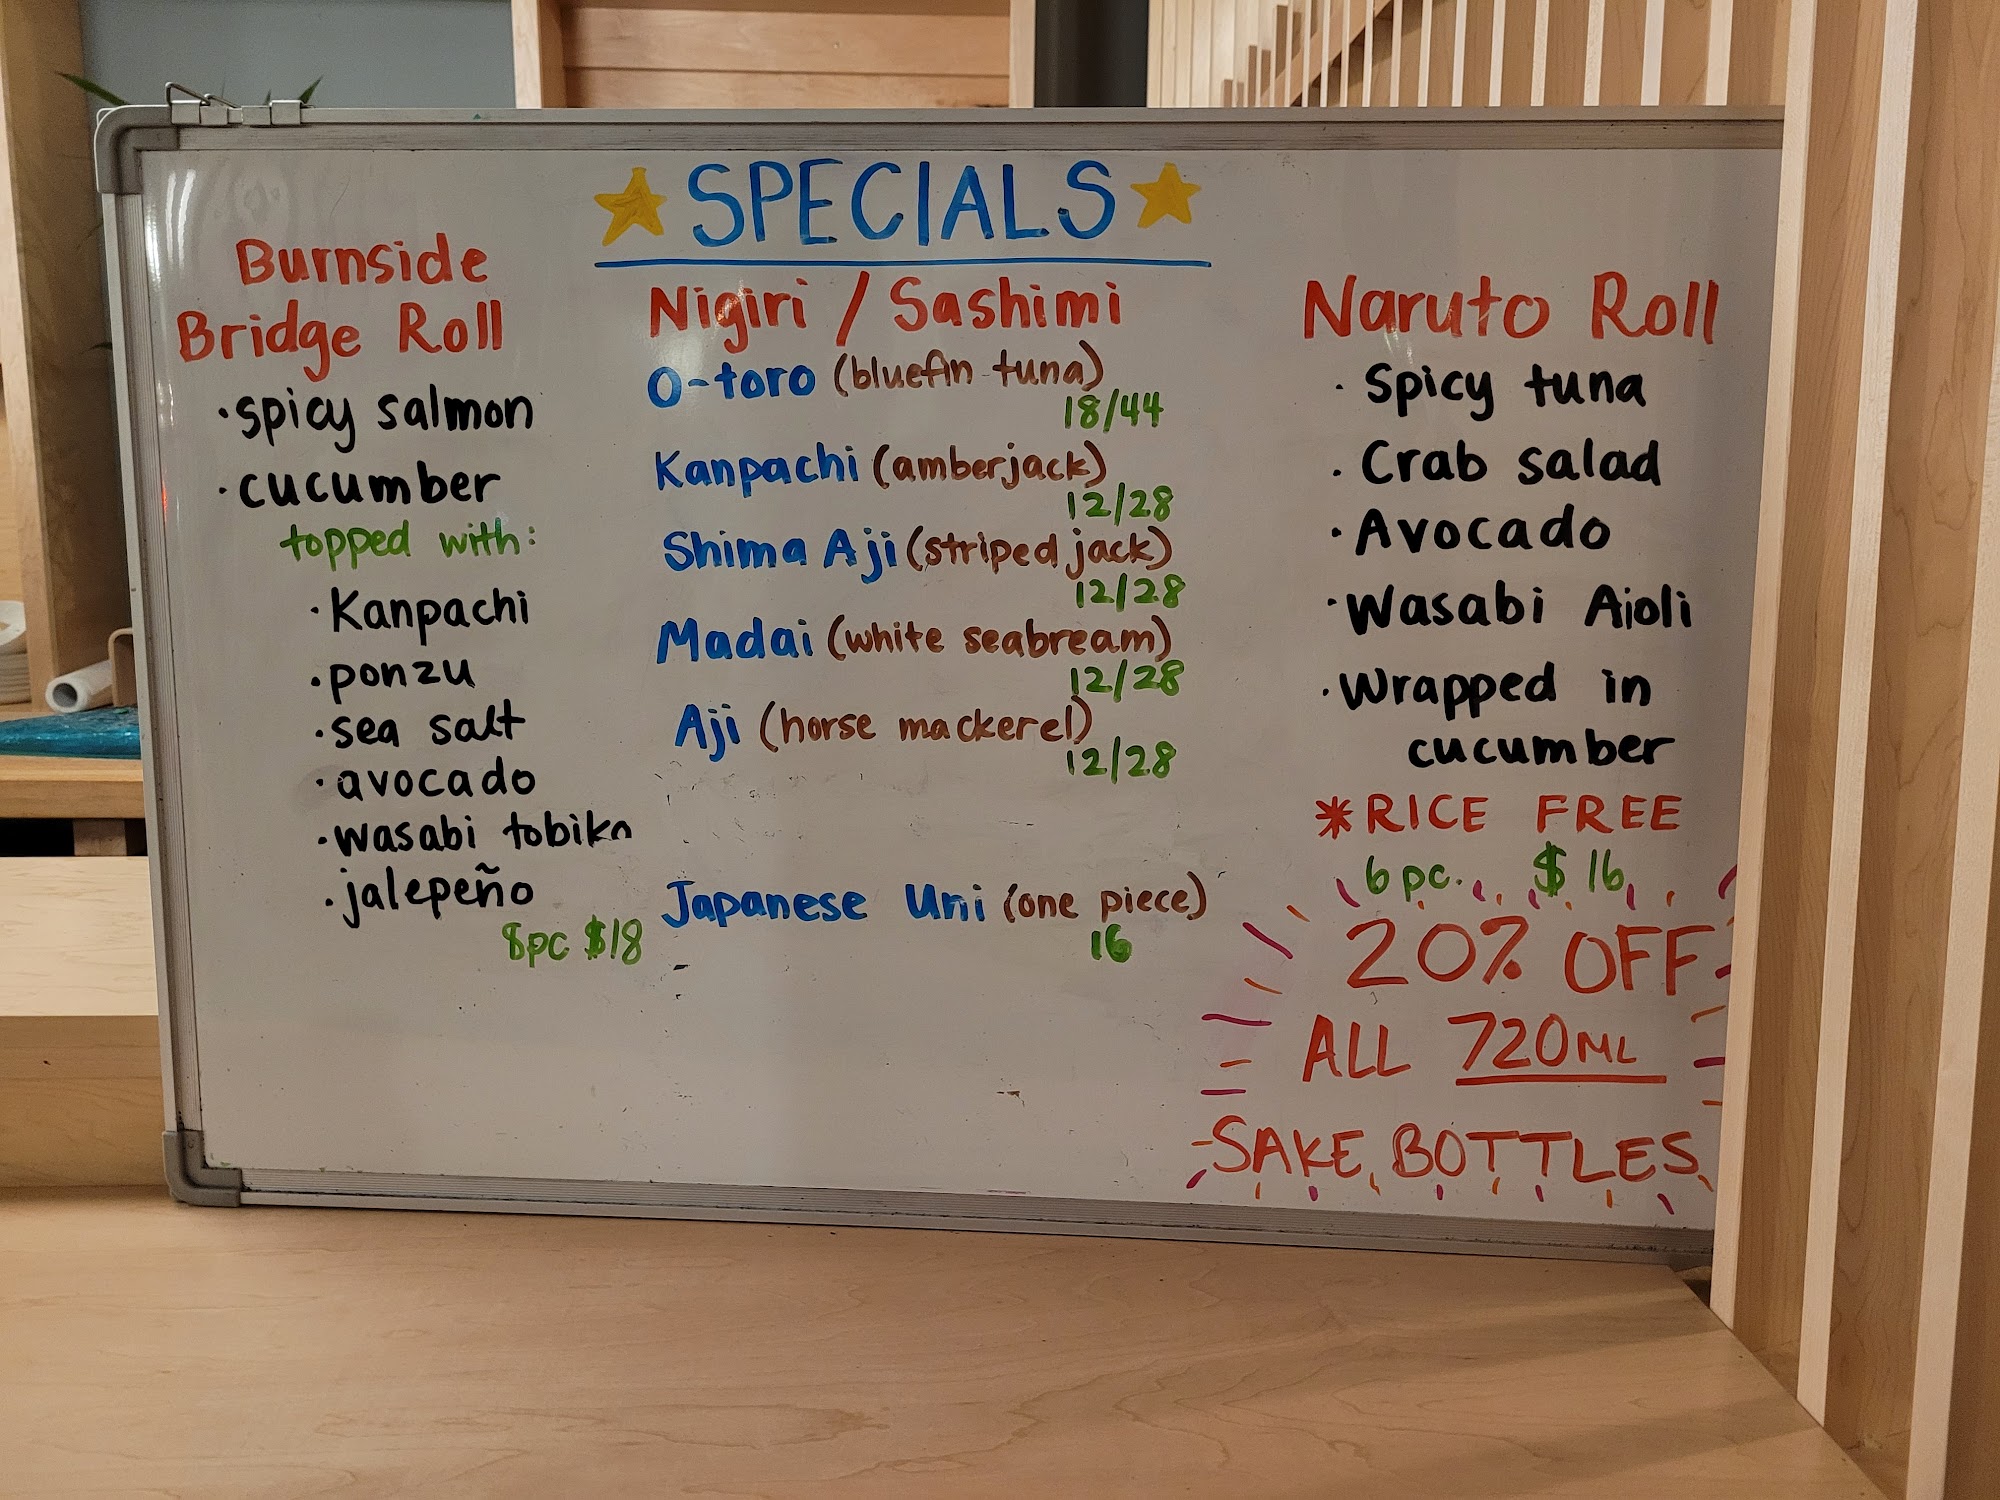 SPECIALS
Burnside
Bridge Roll
· spicy salmon
· cucumber
topped with:
· Kanpachi
· ponzu
· sea salt
· avocado
· wasabi tobiko
· jalepeño
8pc $18
Nigiri / Sashimi
O-toro (bluefin tuna)
18/44
Kanpachi (amberjack)
12/28
Shima Aji (striped jack)
12/28
Madai (white seabream)
12/28
Aji (horse mackerel)
12/28
Japanese Uni (one piece)
16
Naruto Roll
· Spicy tuna
· Crab salad
· Avocado
· Wasabi Aioli
· Wrapped in
cucumber
*RICE FREE
6 pc. $16
20% OFF
ALL 720ML
SAKE BOTTLES